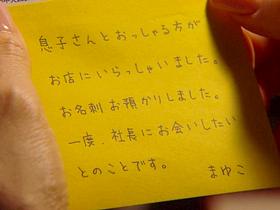 息子さんとおっしゃる方が
お店にいらっしゃいました。
お名刺お預かりしました。
一度、社長にお会いしたい
とのことです。 まゆこ